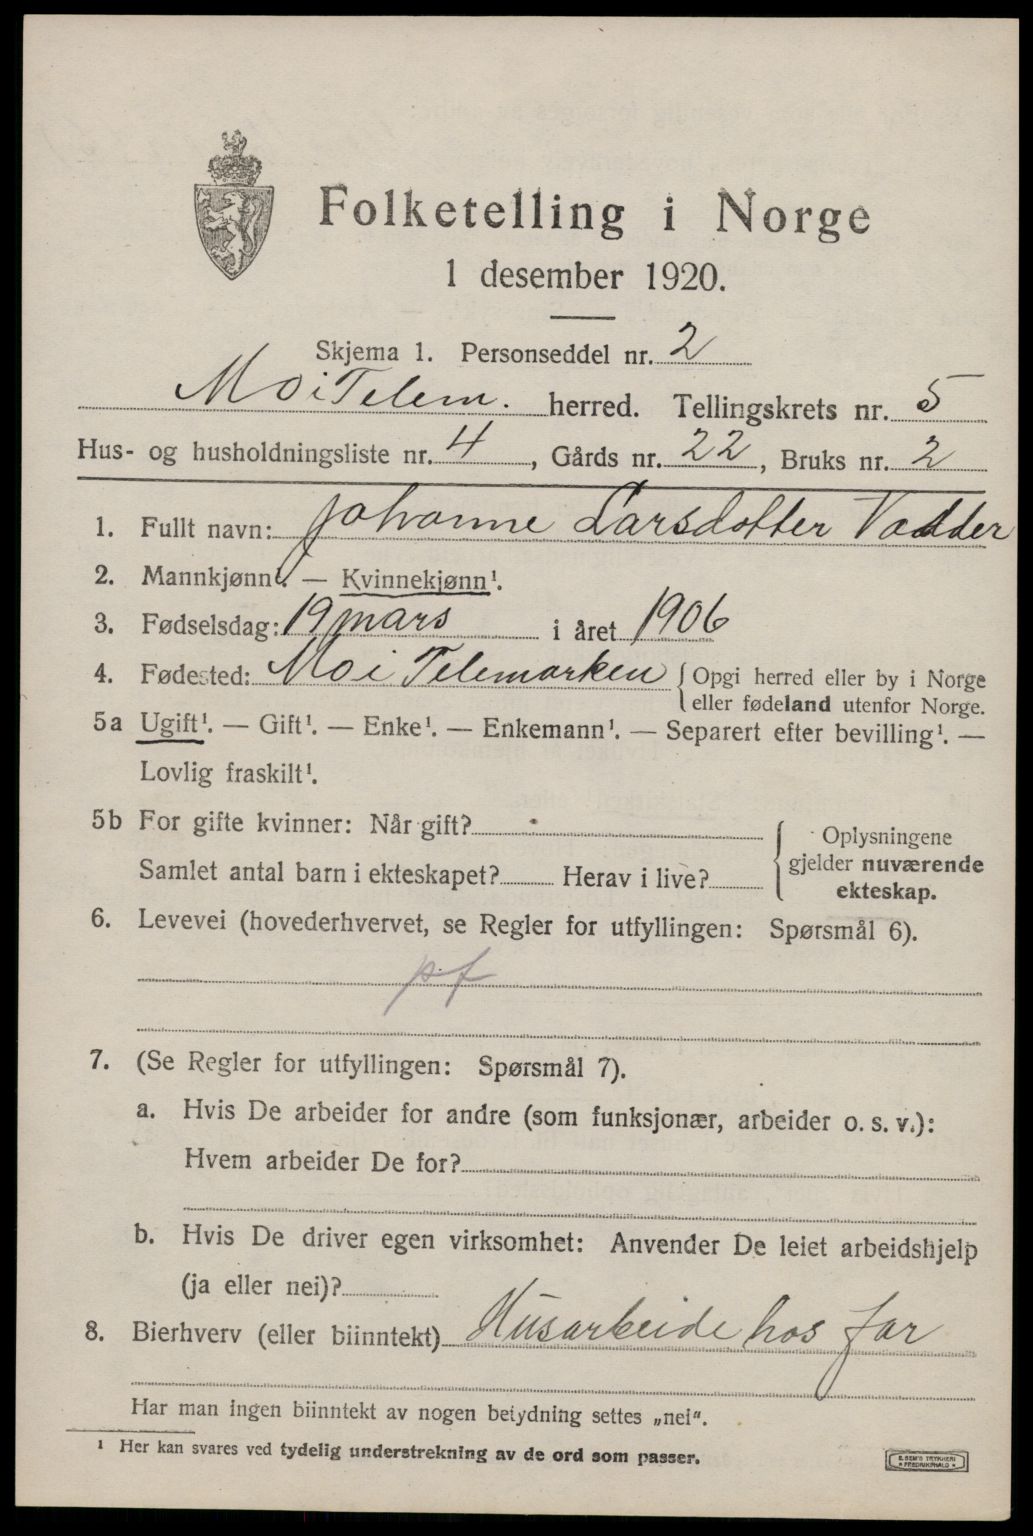 Folketelling i Norge
1 desember 1920.
Skjema 1. Personseddel nr. 2
Mo i Telem. herred. Tellingskrets nr. 5
Hus- og husholdningsliste nr. 4, Gårds nr. 22, Bruks nr. 2
1. Fullt navn: Johanne Larsdotter Vadder
2. Mannkjønn¹. — Kvinnekjønn¹.
3. Fødselsdag: 19 mars i året 1906
4. Fødested: Mo i Telemarken { Opgi herred eller by i Norge
eller fødeland utenfor Norge.
5a Ugift¹. — Gift¹. — Enke¹. — Enkemann¹. — Separert efter bevilling¹. —
Lovlig fraskilt¹.
5b For gifte kvinner: Når gift?
Samlet antal barn i ekteskapet? Herav i live?
{ Oplysningene
gjelder nuværende
ekteskap.
6. Levevei (hovederhvervet, se Regler for utfyllingen: Spørsmål 6).
pf
7. (Se Regler for utfyllingen: Spørsmål 7).
a. Hvis De arbeider for andre (som funksjonær, arbeider o. s. v.):
Hvem arbeider De for?
b. Hvis De driver egen virksomhet: Anvender De leiet arbeidshjelp
(ja eller nei)?
8. Bierhverv (eller biinntekt) Husarbeide hos far
Har man ingen biinntekt av nogen betydning settes „nei".
¹ Her kan svares ved tydelig understrekning av de ord som passer.
E. SEM'S TRYKKERI
* FREDRIKSHALD *